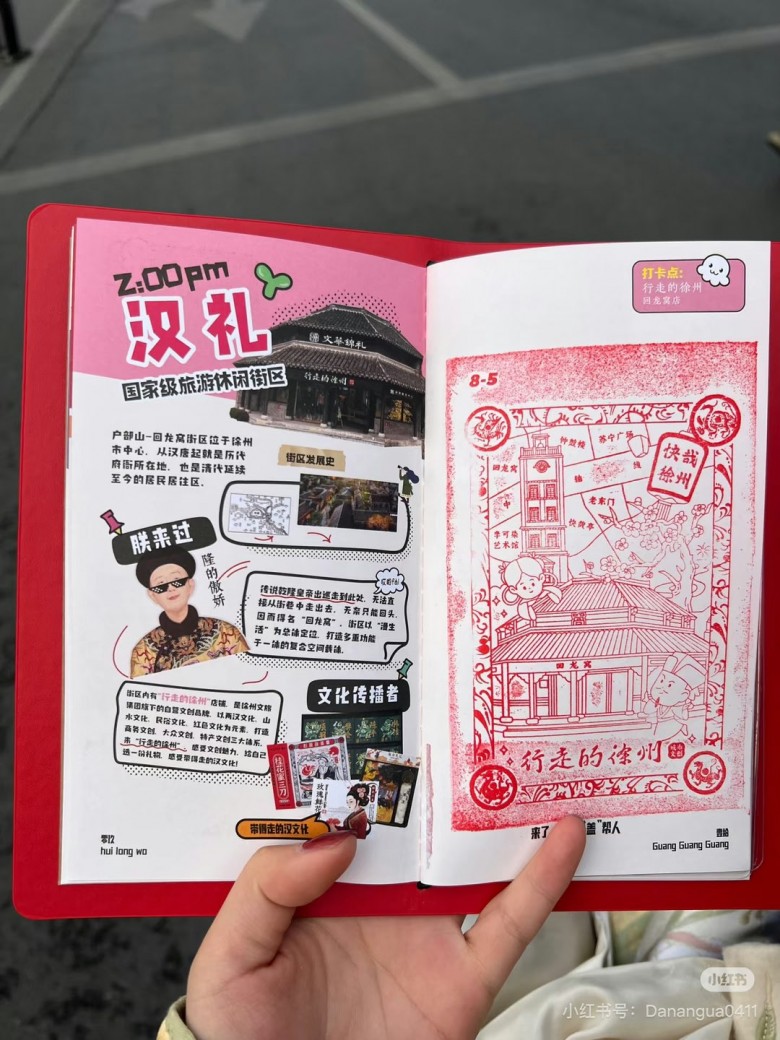 2:00pm
汉礼
国家级旅游休闲街区
文荟锦礼
行走的徐州
户部山-回龙窝街区位于徐州
市中心，从汉唐起就是历代
府衙所在地，也是清代延续
至今的居民居住区。
街区发展史
朕来过
隆的傲娇
传说乾隆皇帝出巡走到此处，无法直
接从街巷中走出去，无奈只能回头，
因而得名“回龙窝”。街区以“漫生
活”为总体定位，打造多重功能
于一体的复合空间载体。
街区内有“行走的徐州”店铺，是徐州文旅
集团旗下的自营文创品牌，以两汉文化、山
水文化、民俗文化、红色文化为元素，打造
商务文创、大众文创、特产文创三大体系。
来“行走的徐州”，感受文创魅力，给自己
选一份礼物，感受带得走的汉文化！
文化传播者
桂花蜜三刀
玫瑰鲜花
带得走的汉文化
hui long wo
打卡点：
行走的徐州
回龙窝店
8-5
钟鼓楼
苏宁广场
快哉
徐州
回龙窝
老东门
快哉亭
李可染
艺术馆
回龙窝
行走的徐州
来了
盖”帮人
Guang Guang Guang
小红书
小红书号：Danangua0411